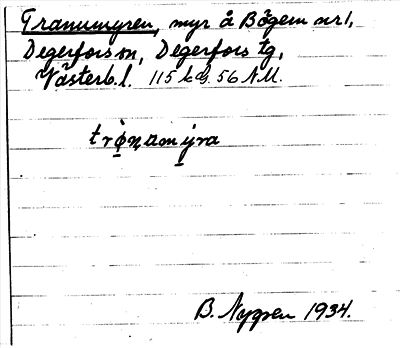 Tranumyren, myr å Bågem nr 1,
Degerfors sn, Degerfors tg,
Västerb. l. 115 56 NM.
B. Nygren 1934.